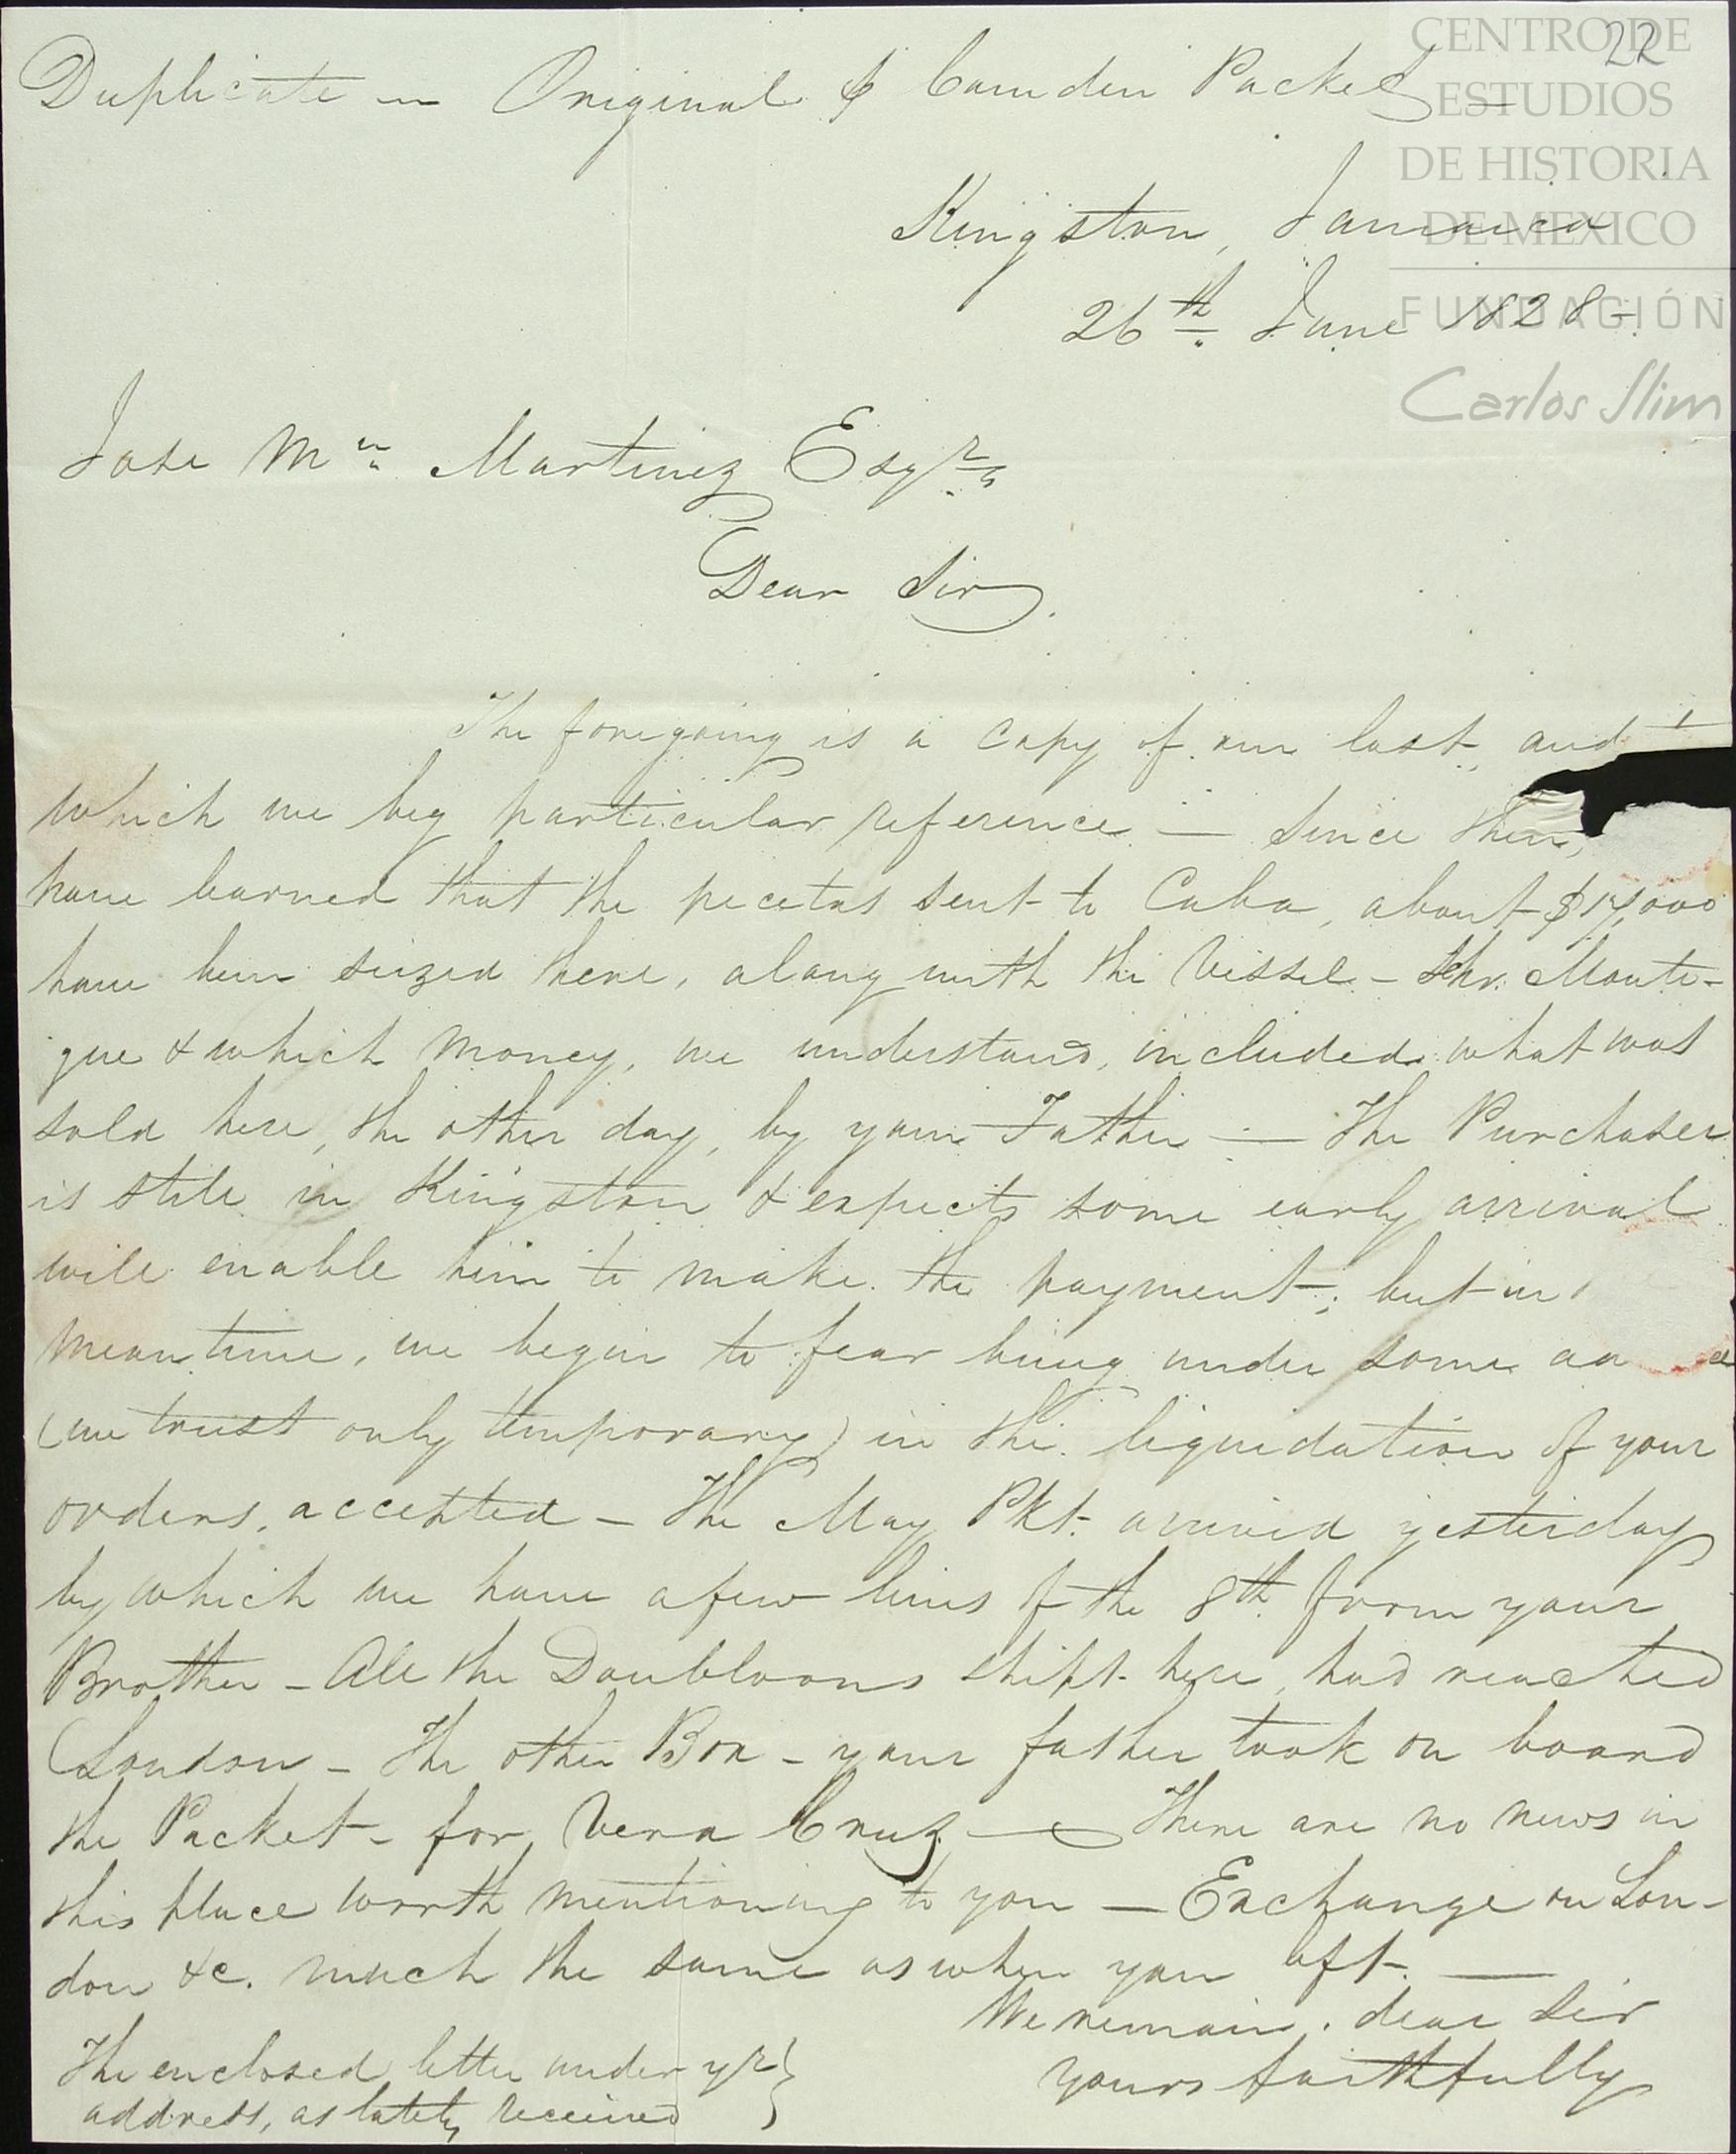 22
CENTRO DE
ESTUDIOS
DE HISTORIA
DE MEXICO
FUNDACIÓN
Carlos Slim
Duplicate — Original ⅌ Camden Packet —
Kingston, Jamaica
26th June 1828 —
Jose Ma Martinez Esqre
Dear Sir,
The foregoing is a copy of our last, and
which we beg particular reference — Since then,
have learned that the pecetas sent to Cuba, about $17,000
have been seized there, along with the Vessel — Schr. Monte-
gue & which money, we understand, included what was
sold here, the other day, by your Father — The Purchaser
is still in Kingston & expects some early arrival
will enable him to make the payment; but in
meantime, we begin to fear being under some
(we trust only temporary) in the liquidation of your
orders, accepted — The May Pkt. arrived yesterday
by which we have a few lines of the 8th from your
Brother — All the Doubloons shipt here, had reached
London — The other Box — your father took on board
the Packet — for Vera Cruz — There are no news in
this place worth mentioning to you — Exchange on Lon-
don &c. much the same as when you left. —
We remain, dear Sir
yours faithfully
The enclosed letter under yr
address, as lately received